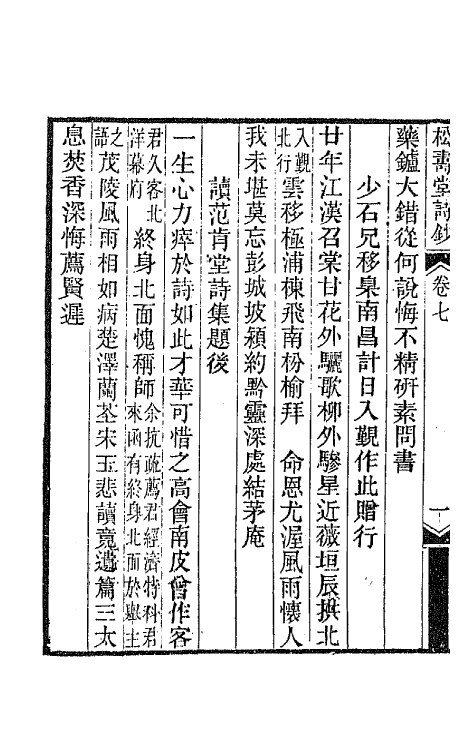 松壽堂詩鈔 卷七 十
藥鑪大錯從何說悔不精研素問書
少石兄移臬南昌計日入覲作此贈行
廿年江漢召棠甘花外驪歌柳外驂星近薇垣辰拱北
入覲北行雲移極浦棟飛南枌榆拜　命恩尤渥風雨懷人
我未堪莫忘彭城坡潁約黔靈深處結茅庵
讀范肯堂詩集題後
一生心力瘁於詩如此才華可惜之高會南皮曾作客
君久客北洋幕府終身北面愧稱師余抗疏薦君經濟特科君來函有終身北面於舉主
之語茂陵風雨相如病楚澤蘭荃宋玉悲讀竟遺篇三太
息焚香深悔薦賢遲